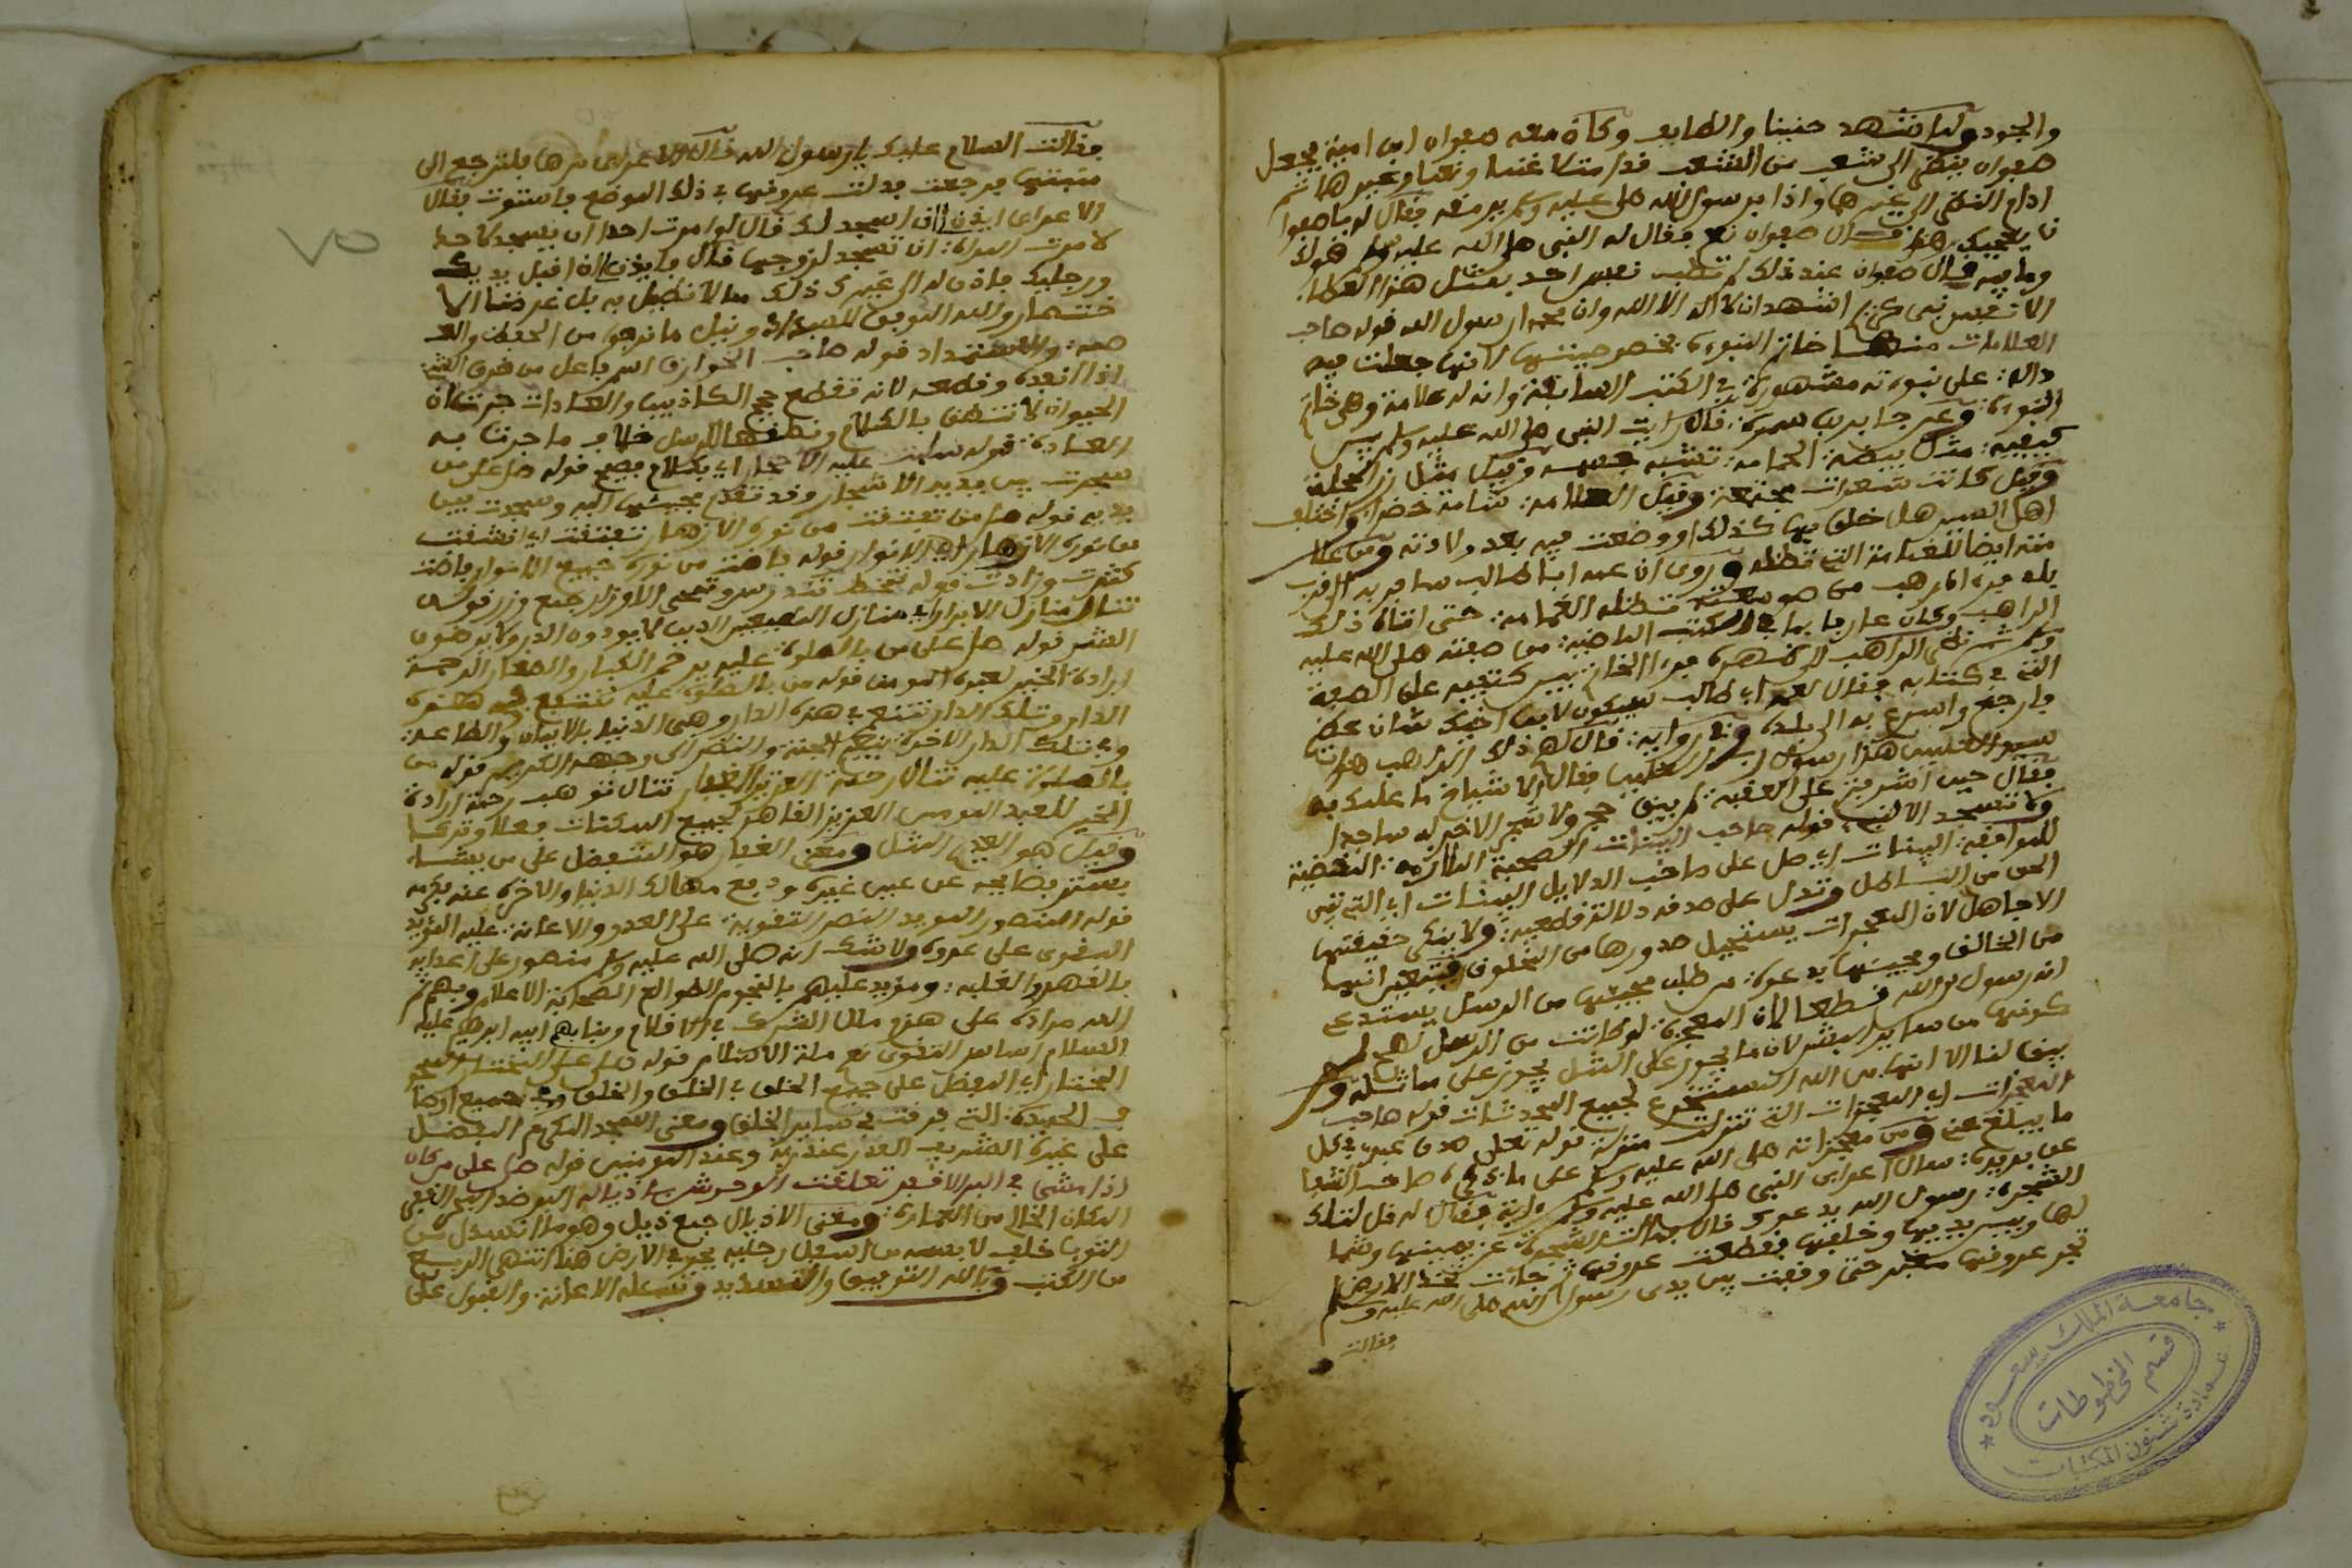 والجود ولما شهد حنينا والطايف وكان معه صفوان ابن امية فجعل
صفوان ينظر الى شعب من الشعب قد امتلا غنما ونعما وغيرها ثم
ادام النظر الى غنمها واذا برسول الله صلى الله عليه وسلم يرمقه فقال له يا صفوا
ن يعجبك هذا قال صفوان نعم فقال له النبي صلى الله عليه وسلم هو لك
وما فيه قال صفوان عند ذلك لم تطب نفس احد بمثل هذا العطاء
الا نفس نبي كريم اشهد ان لا اله الا الله وان محمدا رسول الله قوله صاحب
العلامات منها خاتم النبوءة بخصوصيتها لانها جعلت فيه
دالة على نبوءته مشهورة في الكتب السابقة وانه له علامة وهي خاتم
النبوءة وعن جابر بن سمرة قال رايت النبي صلى الله عليه وسلم بين
كتفيه مثل بيضة الحمامة تشبه جسمه وقيل مثل زر الحجلة
وقيل كانت شعرات مجتمعة وقيل العلامة شامة خضرا واختلف
اهل السير هل خلق بها كذلك او وضعت فيه بعد ولادته ومن علا
مته ايضا الغمامة التي تظله وروي ان عمه ابا طالب سافر به الى قرب
بلد فيه الراهب من صومعته تظله الغمامة حتى اتاه ذلك
الراهب وكان عارفا بما في الكتب الماضية من صفته صلى الله عليه
وسلم ثم نظر الراهب الى ظهره فرءا الخاتم بين كتفيه على الصفة
التي في كتابه فقال لعمه ابي طالب سيكون لابن اخيك شان عظيم
فارجع واسرع به الى بلده وفي رواية قال لهم ذلك الراهب هذا
سيد العالمين هذا رسول رب العالمين فقال الاشياخ ما علمك به
فقال حين اشرفتم على العقبة لم يبق حجر ولا شجر الا خر له ساجدا
ولا تسجد الا لنبي قوله صاحب البينات الصحبة الملازمة المقتضية
للموافقة البينات اي صل على صاحب الدلايل البينات اي التي تبين
الحق من الباطل وتدل على صدقه دلالة قطعية ولا ينكر حقيقتها
الا جاهل لان المعجزات يستحيل صدورها من المخلوق فتعين انها
من الخالق ومجيئها يدعوه من طلب مجيئها من الرسل يستدعي
انه رسول الله قطعا لان المعجزة لو كانت من الرسل لصح
كونها من ساير البشر لان ما يجوز على المثل يجوز على مماثله و
يبق لنا الا انها من الله المستخرع لجميع المحدثات قوله صاحب
المعجزات اي المعجزات التي تنزلت منزلة قوله تعالى صدق عبدي في كل
ما يبلغ عني ومن معجزاته صلى الله عليه وسلم على ما ذكره صاحب الشفا
عن بريدة سال اعرابي النبي صلى الله عليه وسلم ءاية فقال له قل لتلك
الشجرة رسول الله يدعوك قال فمالت الشجرة عن يمينها وشما
لها وبين يديها وخلفها فقطعت عروقها ثم جاءت تخط الارض
تجر عروقها مغبرة حتى وقفت بين يدي رسول الله صلى الله عليه وسلم
فقالت
جامعة الملك سعود
قسم المخطوطات
عمادة شئون المكتبات
٧٥
فقالت السلام عليك يا رسول الله قال الاعرابي مرها فلترجع الى
منبتها فرجعت فدلت عروقها في ذلك الموضع فاستوت فقال
الاعرابي ايذن لي ان اسجد لك قال لو امرت احدا ان يسجد لاحد
لامرت المراة ان تسجد لزوجها قال فايذن لي ان اقبل يديك
ورجليك فاذن له الى غير ذلك مما لا نطيل به بل غرضنا الا
ختصار والله الموفق للسداد ونيل ما نرجو من الحفظ والعـ
صمة والاستمداد قوله صاحب الخوارق اسم فاعل من خرق الشيء
اذا نفذه وقطعه لانه تقطع حجج الكاذبين والعادات جرت ان
الحيوان لا تنطق بالكلام ونطقها للرسل خلاف ما جرت به
العادة قوله سلمت عليه الاحجار اي بكلام فصيح قوله صل على من
سجدت بين يديه الاشجار وقد تقدم مجيئها اليه وسجدت بين
يديه قوله صل على من تفتقت من نوره الازهار تفتقت اي انشقت
من نوره الازهار اي الانوار قوله فاضت من نوره جميع الانوار فاضت
كثرت وزادت
تنال منازل الابرار اي منازل المطيعين الذين لا يوذون الذر ولا يرضون
الشر قوله صل على من بالصلوة عليه يرحم الكبار والصغار الرحمة
ارادة الخير لعبده المومن قوله من بالصلوة عليه نتنعم في هذه
الدار وتلك الدار نتنعم في هذه الدار وهي الدنيا بالايمان والطاعة
وفي تلك الدار الاخرة بنعم الجنة والنظر الى وجهه الكريم قوله من
بالصلوة عليه تنال رحمة العزيز الغفار تنال توهب رحمة ارادة
الخير للعبد المومن العزيز القاهر لجميع الممكنات فعلا وتركا
وقيل هو العديم المثل ومعنى الغفار هو المتفضل على من يشاء
بستر فضايحه عن عين غيره ودفع مهالك الدنيا والاخرة عنه بكرمه
قوله المنصور المويد النصر التقوية على العدو والاعانة عليه المؤيد
المقوى على عدوه ولا شك انه صلى الله عليه وسلم منصور على اعدايه
بالقهر والغلبة ومؤيد عليهم بالنجوم الطوالع الصحابة الاعلام وبهم تم
الله مراده على هزم ملل الشرك في الاقلام وبناءهم ابيه ابرهيم عليه
السلام اساس التقوى نعم ملة الاسلام قوله صل على المختار الممجد
المختار اي المفضل على جميع الخلق في الخلق والخلق وفي جميع اوصا
فه الحميدة التي فرقت في ساير الخلق ومعنى الممجد المكرم المفضل
على غيره الشريف القدر عند ربه وعند المومنين قوله صل على من كان
اذا مشى في البر الاقفر تعلقت الوحوش باذياله البر ضد البحر القفر
المكان الخالي من العمارة ومعنى الاذيال جمع ذيل وهو ما انسدل من
الثوب خلف لابسه من اسفل رجليه يجره في الارض هنا انتهى الربع
من الكتب وبالله التوفيق والتسديد ونسئله الاعانة والقبول على